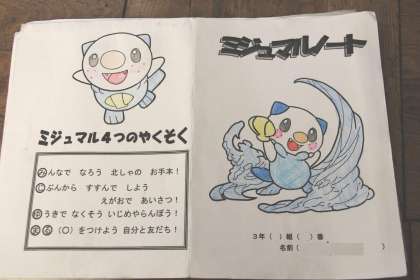 ミジュマルノート
ミジュマル4つのやくそく
みんなで なろう 北しゃの お手本!
じぶんから すすんで しよう
えがおで あいさつ!
ゆうきで なくそう いじめやらんぼう!
まる(○)をつけよう 自分と友だち!
3年( )組( )番
名前(